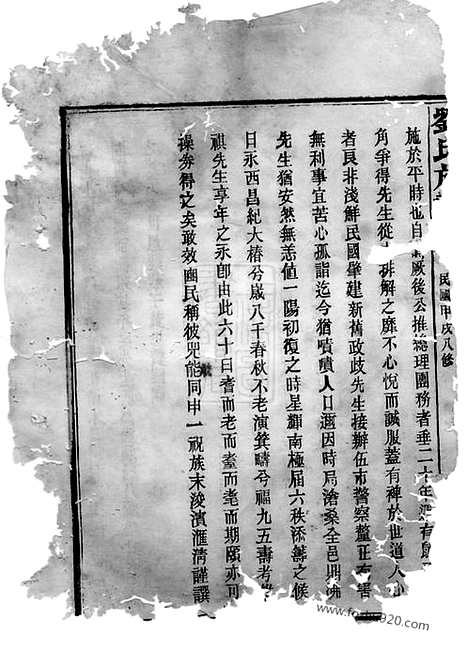 劉氏
民國甲戌八修
施於平時也自
厥後公推總理團務者垂二十年
有
角爭得先生從
排解之靡不心悅而誠服蓋有裨於世道人心
者良非淺鮮民國肇建新舊政歧先生接辦伍市警察釐正有
無利事宜苦心孤詣迄今猶嘖嘖人口邇因時局滄桑全邑鼎沸
先生猶安然無恙値一陽初復之時星輝南極屆六秩添籌之候
日永西昌紀大椿兮歲八千春秋不老演箕疇兮福九五壽考
祺先生享年之永卽由此六十曰耆而老而耋而耄而期頤亦可
操券得之矣敢效豳民稱彼兕觥同申一祝族末浚濱滙淸謹譔
www.fortune920.com